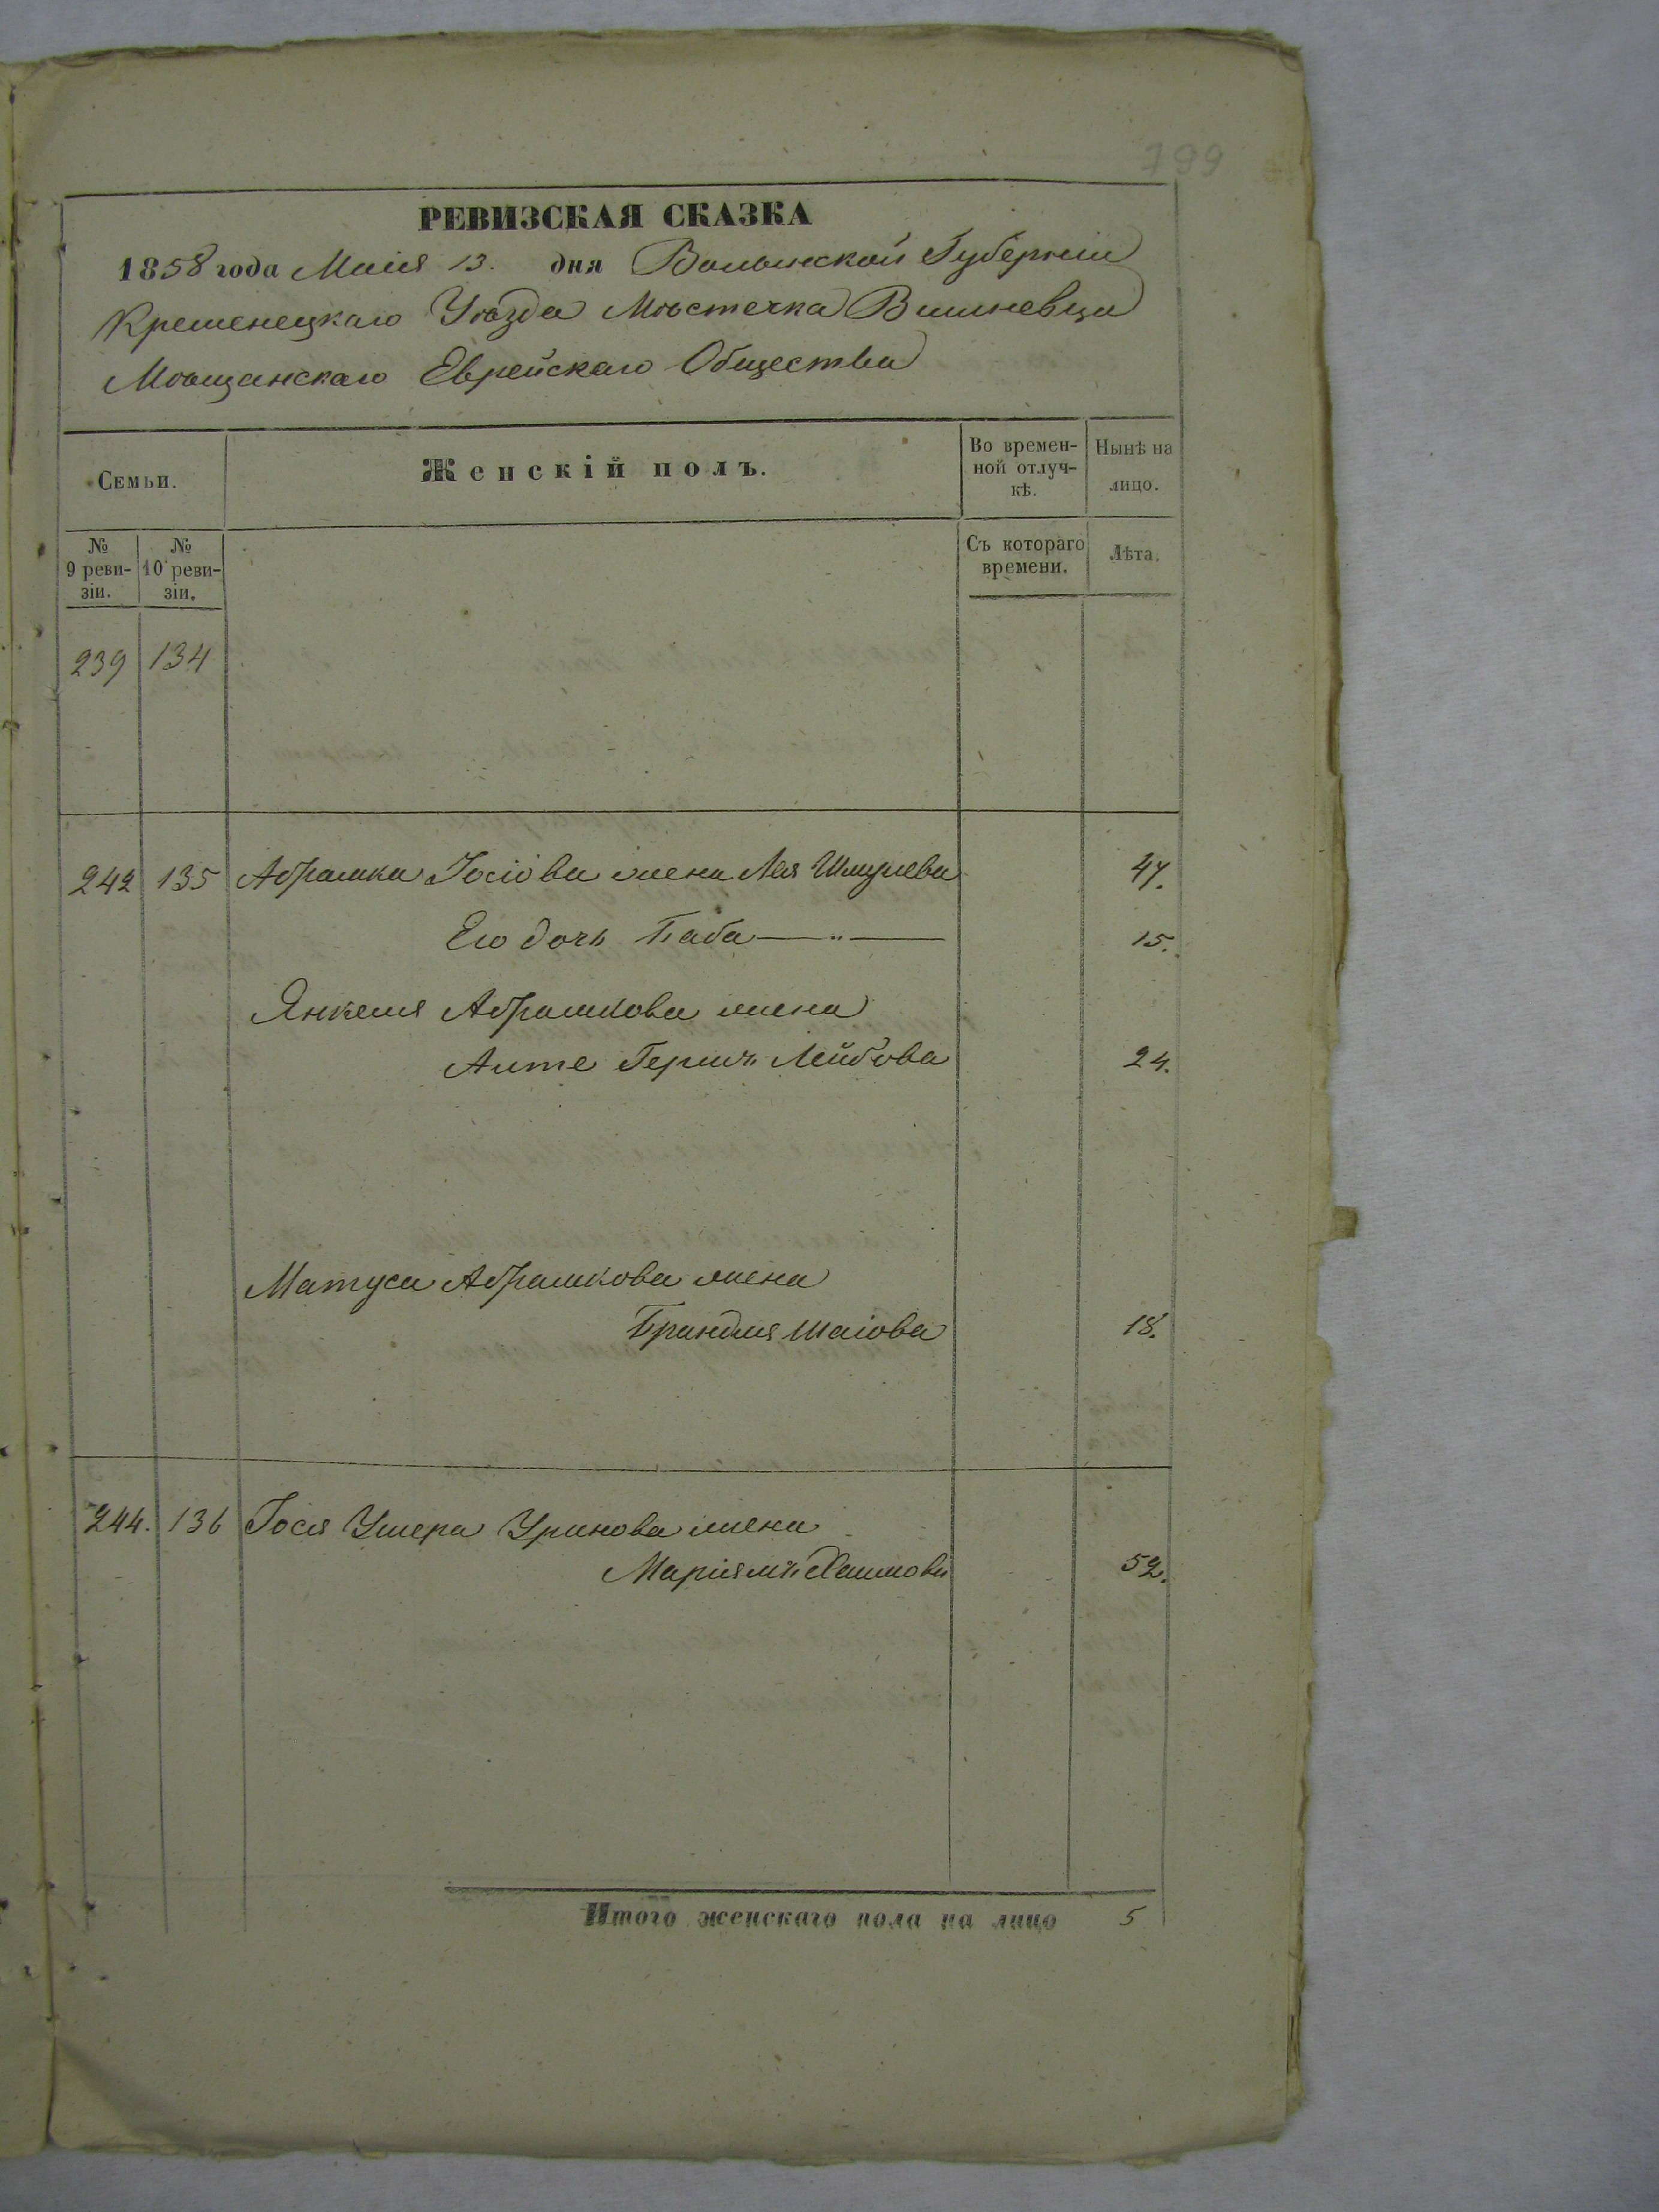 799
РЕВИЗСКАЯ СКАЗКА
1858 года Маія 13. дня Волынской Губерніи
Кременецкаго Уѣзда Мѣстечка Вишневца
Мѣщанскаго Еврейскаго Общества
Семьи.
Женскій полъ.
Во времен-
ной отлуч-
кѣ.
Нынѣ на
лицо.
№
9 реви-
зіи.
№
10 реви-
зіи.
Съ котораго
времени.
Лѣта.
239 134
242 135 Абрашка Іосіова жена Лея Шмулева 47.
Его дочь Баба —〃— 15.
Янкеля Абрашкова жена
Анте Гершъ Лейбова 24.
Матуса Абрашкова жена
Брандля Шаіова 18.
244. 136 Іося Ушера жена
Маріямъ Хаимова 52.
Итого женскаго пола на лицо 5